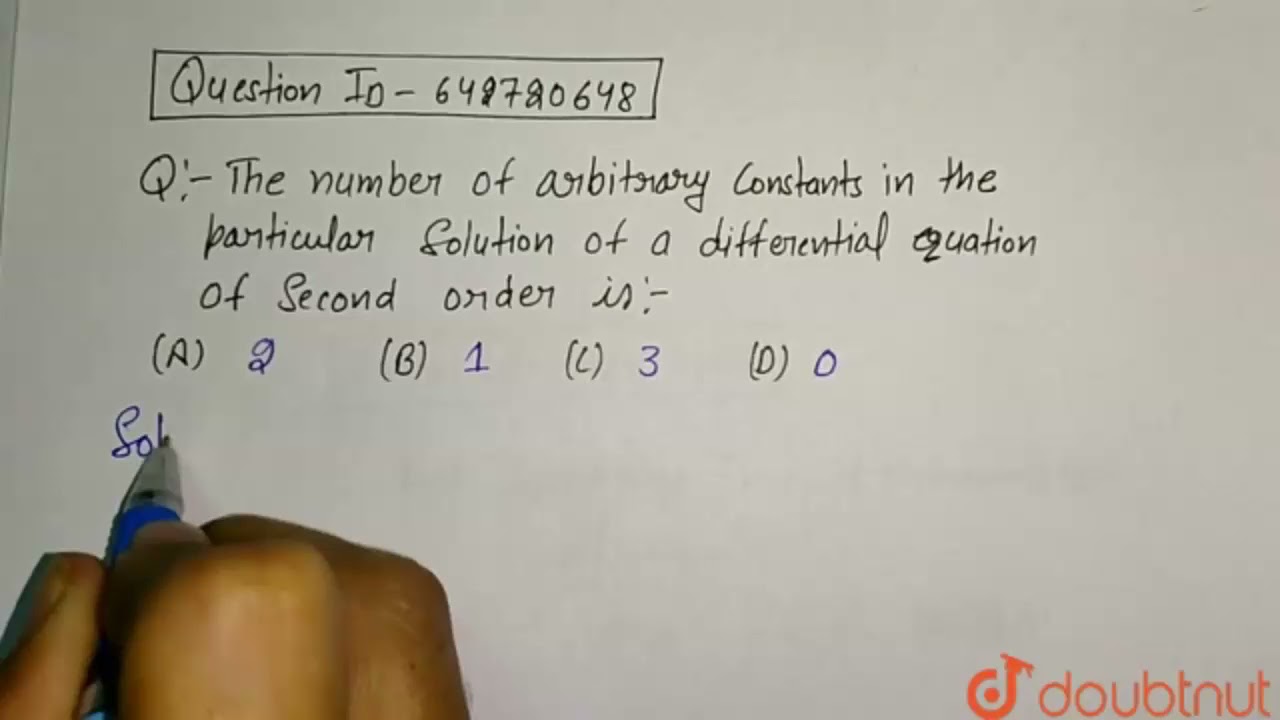 Question ID - 642720648
Q:- The number of arbitrary Constants in the
particular Solution of a differential equation
Of Second order is:-
(A) 2 (B) 1 (C) 3 (D) 0
Sol
doubtnut